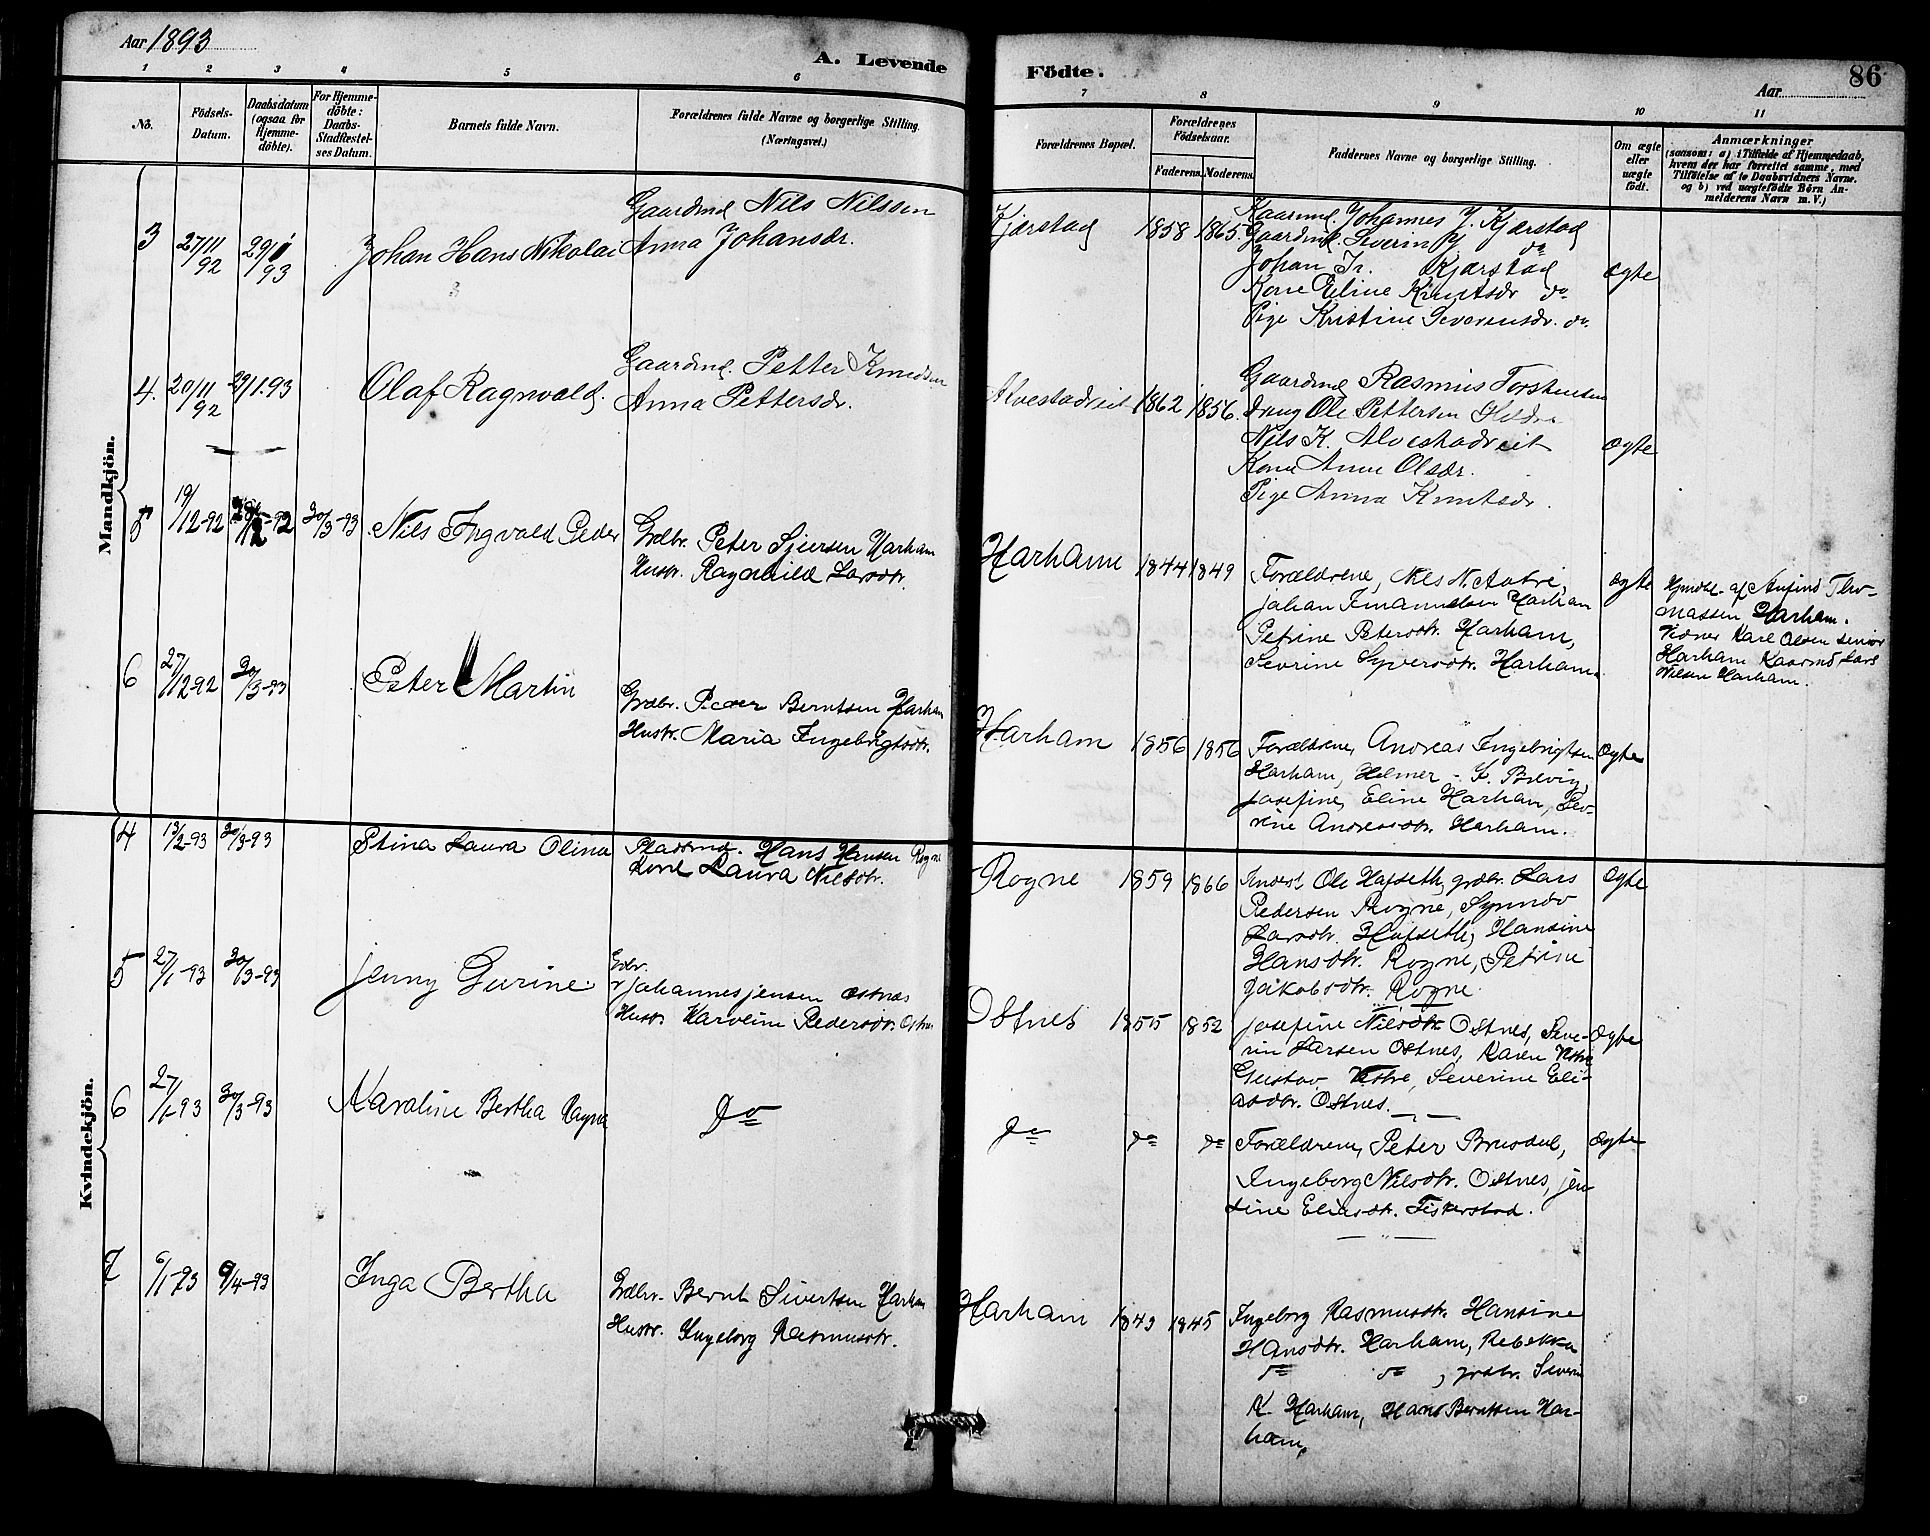 Aar 1893
A. Levende
Födte.
Aar
86
1 2 3 4 5 6
7 8 9 10 11
No.
Födsels-
Datum.
Daabsdatum
(ogsaa for
Hjemme-
döbte).
For Hjemme-
döbte:
Daabs-
Stadfæstel-
ses Datum.
Barnets fulde Navn.
Forældrenes fulde Navne og borgerlige Stilling.
(Næringsvei.)
Forældrenes Bopæl.
Forældrenes
Födselsaar.
Faderens. Moderens.
Faddernes Navne og borgerlige Stilling.
Om ægte
eller
uægte
födt.
Anmærkninger
(saasom: a) i Tilfælde af Hjemmedaab,
hvem der har forrettet samme, med
Tilföielse af to Daabsvidners Navne.
og b) ved uægtefödte Börn An-
melderens Navn m. V.)
Mandkjön.
3 27/11 92 29/1 93 Johan Hans Nikolai
Gaardmd Nils Nilssen
Anna Johansdr.
Kjærstad 1858 1865
Kaarmd Johannes J. Kjærstad
Gaardmd. Severin do
Johan Kjærstad
Kone Eline Knutsdr do
Pige Kristine Severinsdr. do
ægte
4. 20/11 92 29/1.93 Olaf Ragnvald.
Gaardmd. Petter Knudsen
Anna Pettersdr.
Alvestadreit 1862 1856.
Gaardmd Rasmus Torstensen
Dreng Ole Pettersen
Nils K. Alvestadreit
Kone Anne Olsdr.
Pige Anna Knutsdr.
ægte
5 19/12-92 30/3-93 Nils Ingvald Peder
Grdbr. Peter Sjursen Harham
Hustr. Ragnhild Larsdtr.
Harham 1844 1849
Forældrene, Nils N. Aatre,
Johan Emanuelsen Harham
Petrine Petersdtr. Harham,
Sevrine Syversdtr. Harham.
ægte
Hjmdbt. af Anfind Tho-
massen Harham.
Vidner Karl Olsen senior
Harham Kaarmd Lars
Nilsen Harham.
6 27/12-92 30/3-93 Peter Martin
Grdbr. Peder Berntsen Harham
Hustr. Maria Ingebrigtsdtr.
Harham 1856 1856
Forældrene, Andreas Ingebrigtsen
Harham, Helmer Brevig,
Josefine, Eline Harham, Sev-
rine Andreasdtr. Harham.
Ægte
Kvindekjön.
4 13/2-93 30/3-93 Stina Laura Olina
Pladsmd. Hans Hansen Rogne
Kone Laura Nilsdtr.
Rogne 1859 1866
Inderst Ole Hafseth, grdbr. Lars
Pedersen Rogne, Synnöv
Larsdtr. Hafseth, Hansine
Hansdtr. Rogne, Petrine
Jakobsdtr. Rogne.
Ægte
5 27/1-93 30/3-93 Jenny Gurine
Grdbr.
Johannes Jensen Østnes
Hustr. Karoline Pedersdtr. Ostnes
Ostnes 1855 1852
Josefine Nilsdtr. Ostnes, Seve-
rin Larsen Ostnes, Karen Vestre
Gustav Vestre, Severine Eli-
asdtr. Ostnes.
Ægte
6 27/1-93 30/3-93 Karoline Bertha Ragna
do
do do do
Forældrene, Peter Brusdal,
Ingeborg Nilsdtr. Ostnes, Jen-
sine Eliasdtr. Fiskerstad.
Ægte
7 6/1-93 9/4-93 Inga Bertha
Grdbr. Bernt Sivertsen Harham
Hustr. Ingeborg Rasmusdtr.
Harham 1843 1845
Ingeborg Rasmusdtr. Hansine
Hansdtr. Harham, Rebekka
do do, grdbr. Severin
K. Harham, Hans Berntsen Har-
ham.